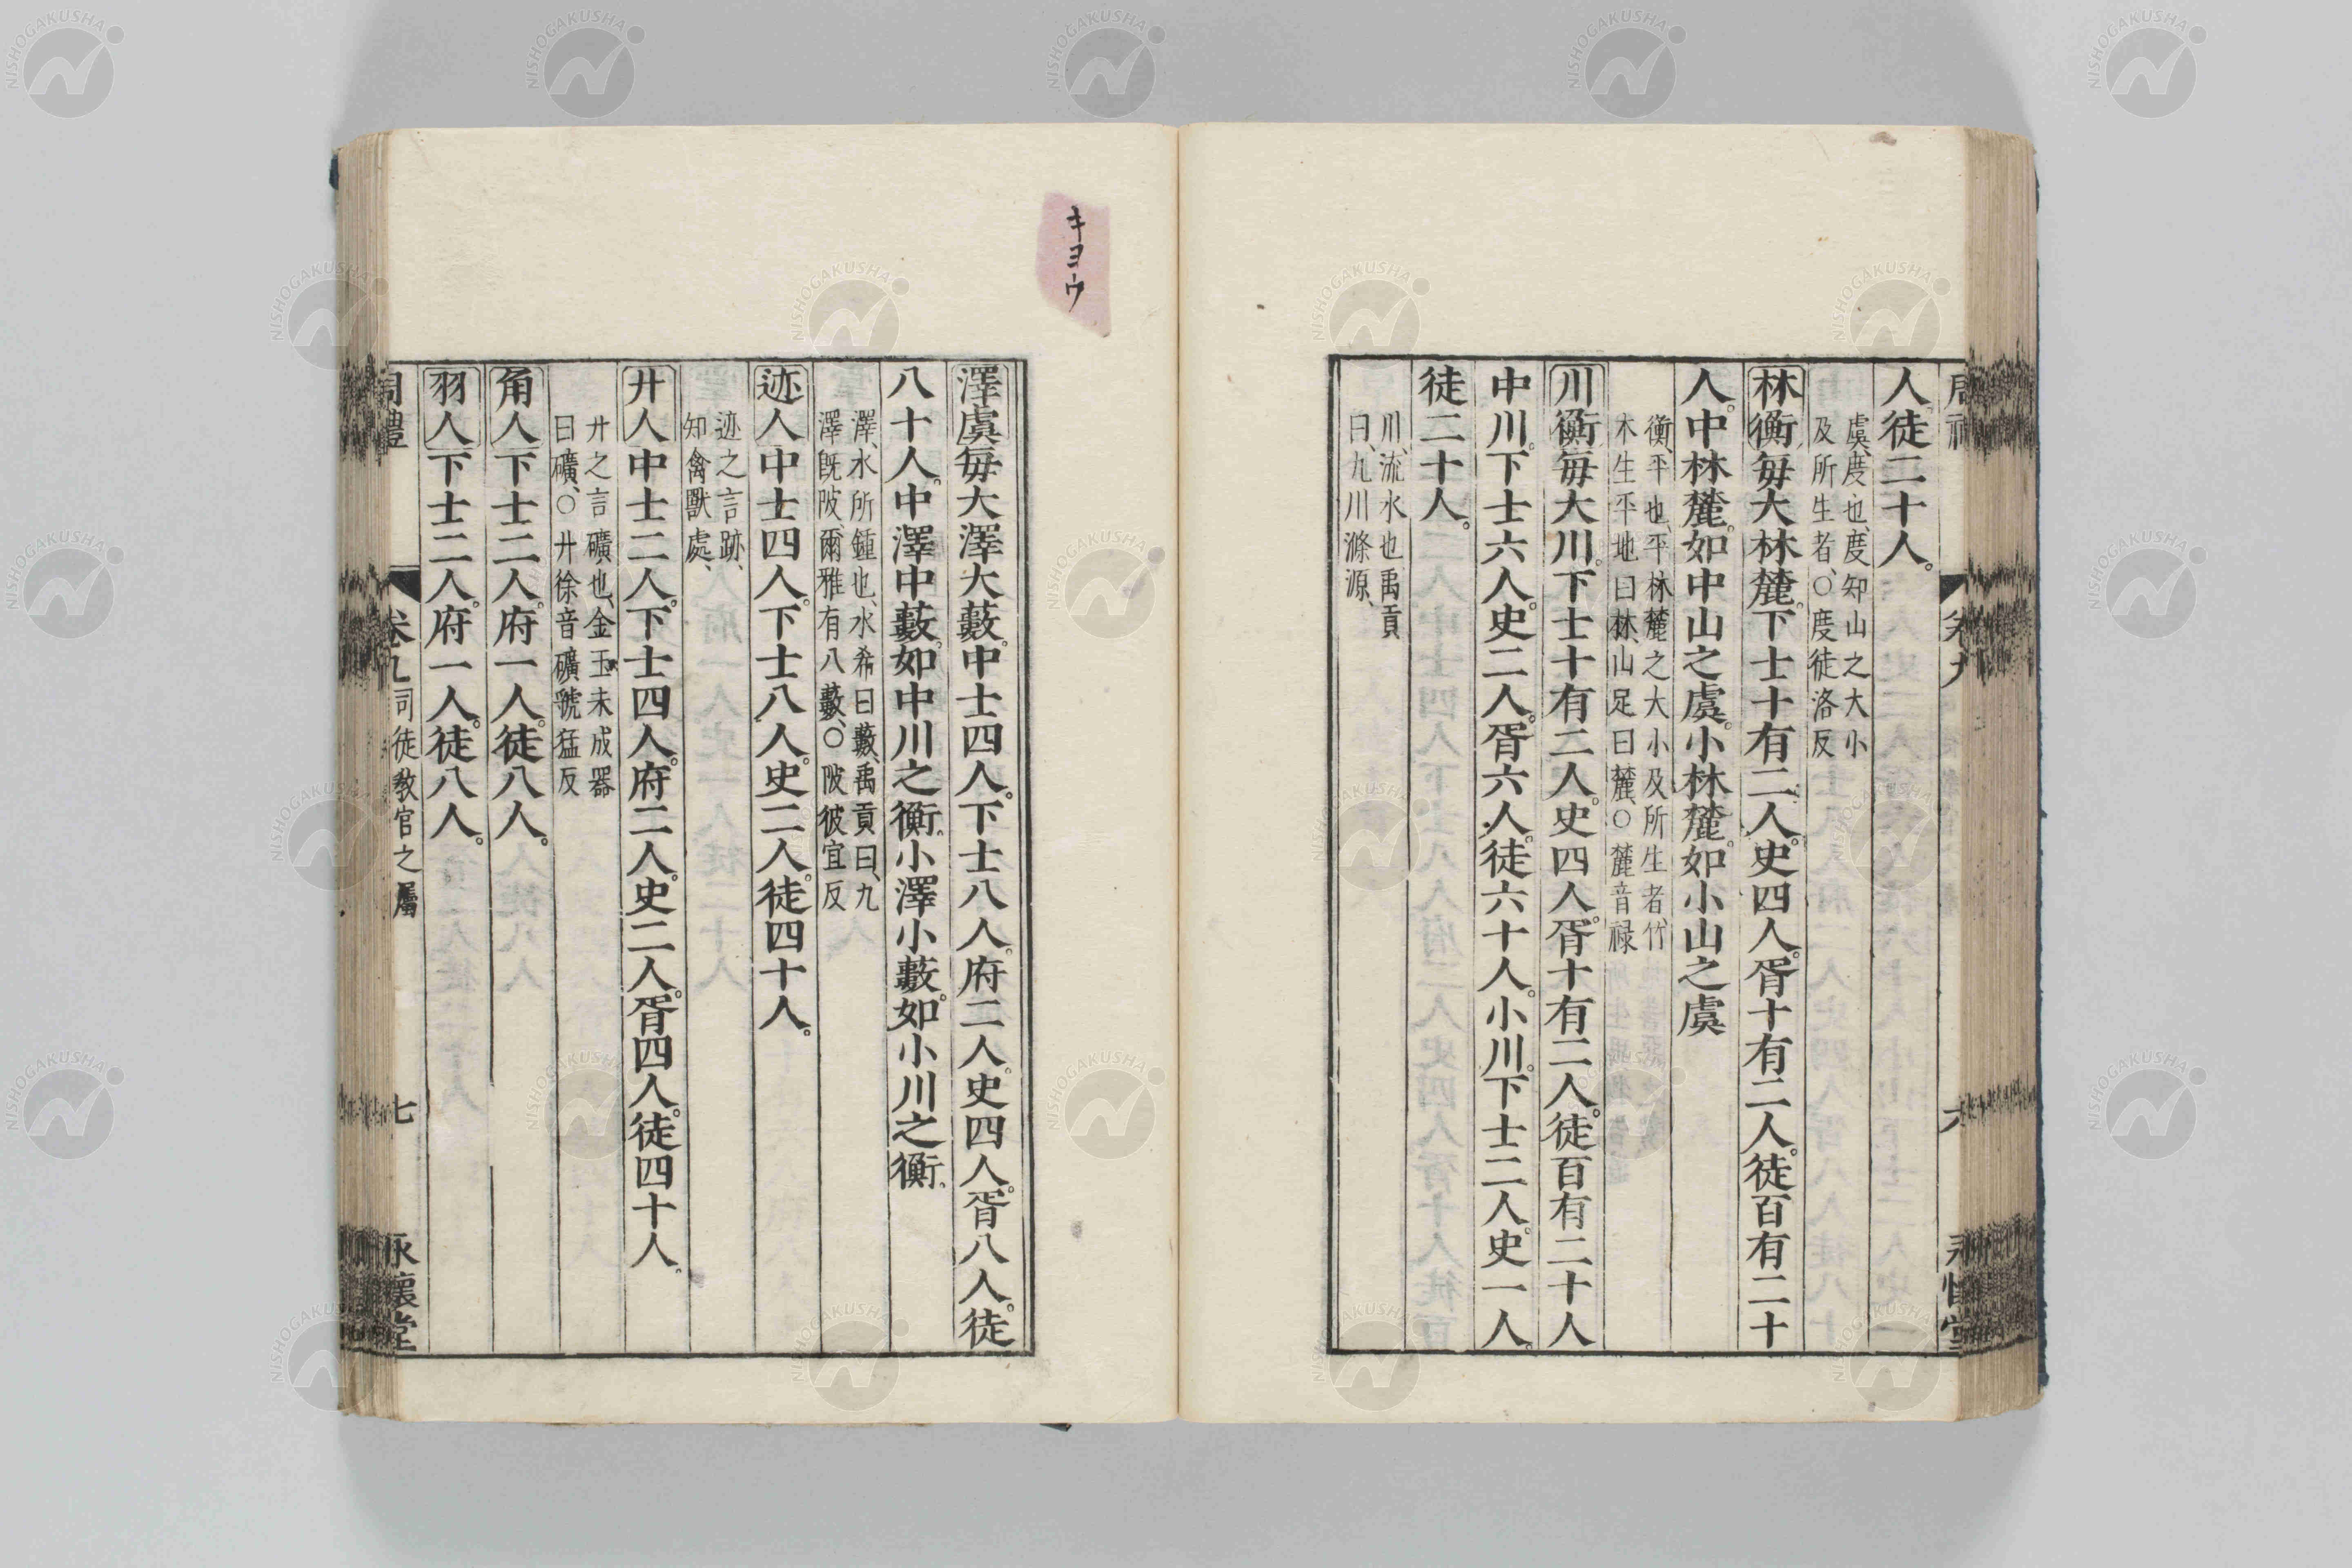 人徒二十人。
虞、度也、度知山之大小
及所生者、○度徒洛反
林衡每大林麓。下士十有二人。史四人。胥十有二人。徒百有二十
人。中林麓。如中山之虞。小林麓。如小山之虞
衡、平也、平林麓之大小及所生者、竹
木生平地曰林、山足曰麓、○麓音禄
川衡每大川。下士十有二人。史四人。胥十有二人。徒百有二十人
中川。下士六人。史二人。胥六人。徒六十人。小川。下士二人。史一人。
徒二十人。
川、流水也、禹貢
曰、九川滌源、
澤虞每大澤大藪。中士四人。下士八人。府二人。史四人。胥八人。徒
八十人。中澤中藪。如中川之衡。小澤小藪。如小川之衡。
澤、水所鍾也、水希曰藪、禹貢曰、九
澤既陂、爾雅有八藪、○陂彼宜反
迹人中士四人。下士八人。史二人。徒四十人。
迹之言跡、
知禽獸處、
廾人中士二人。下士四人。府二人。史二人。胥四人。徒四十人。
廾之言礦也、金玉未成器
曰礦、○廾徐音礦虢猛反
角人下士二人。府一人。徒八人。
羽人下士二人。府一人。徒八人。
周禮 卷九司徒教官之屬 七 永懷堂
キヨウ
NISHOGAKUSHA